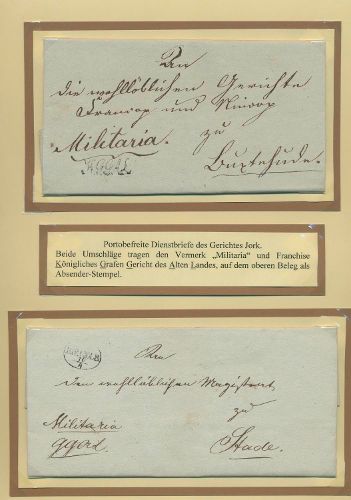 An
die wohllöblichen Gerichte
Francop und Nincop
Militaria. zu
Buxtehude.
Portobefreite Dienstbriefe des Gerichtes Jork.
Beide Umschläge tragen den Vermerk „Militaria" und Franchise
Königliches Grafen Gericht des Alten Landes, auf dem oberen Beleg als
Absender-Stempel.
An
den wohllöblichen Magistrat
zu
Militaria
Stade.